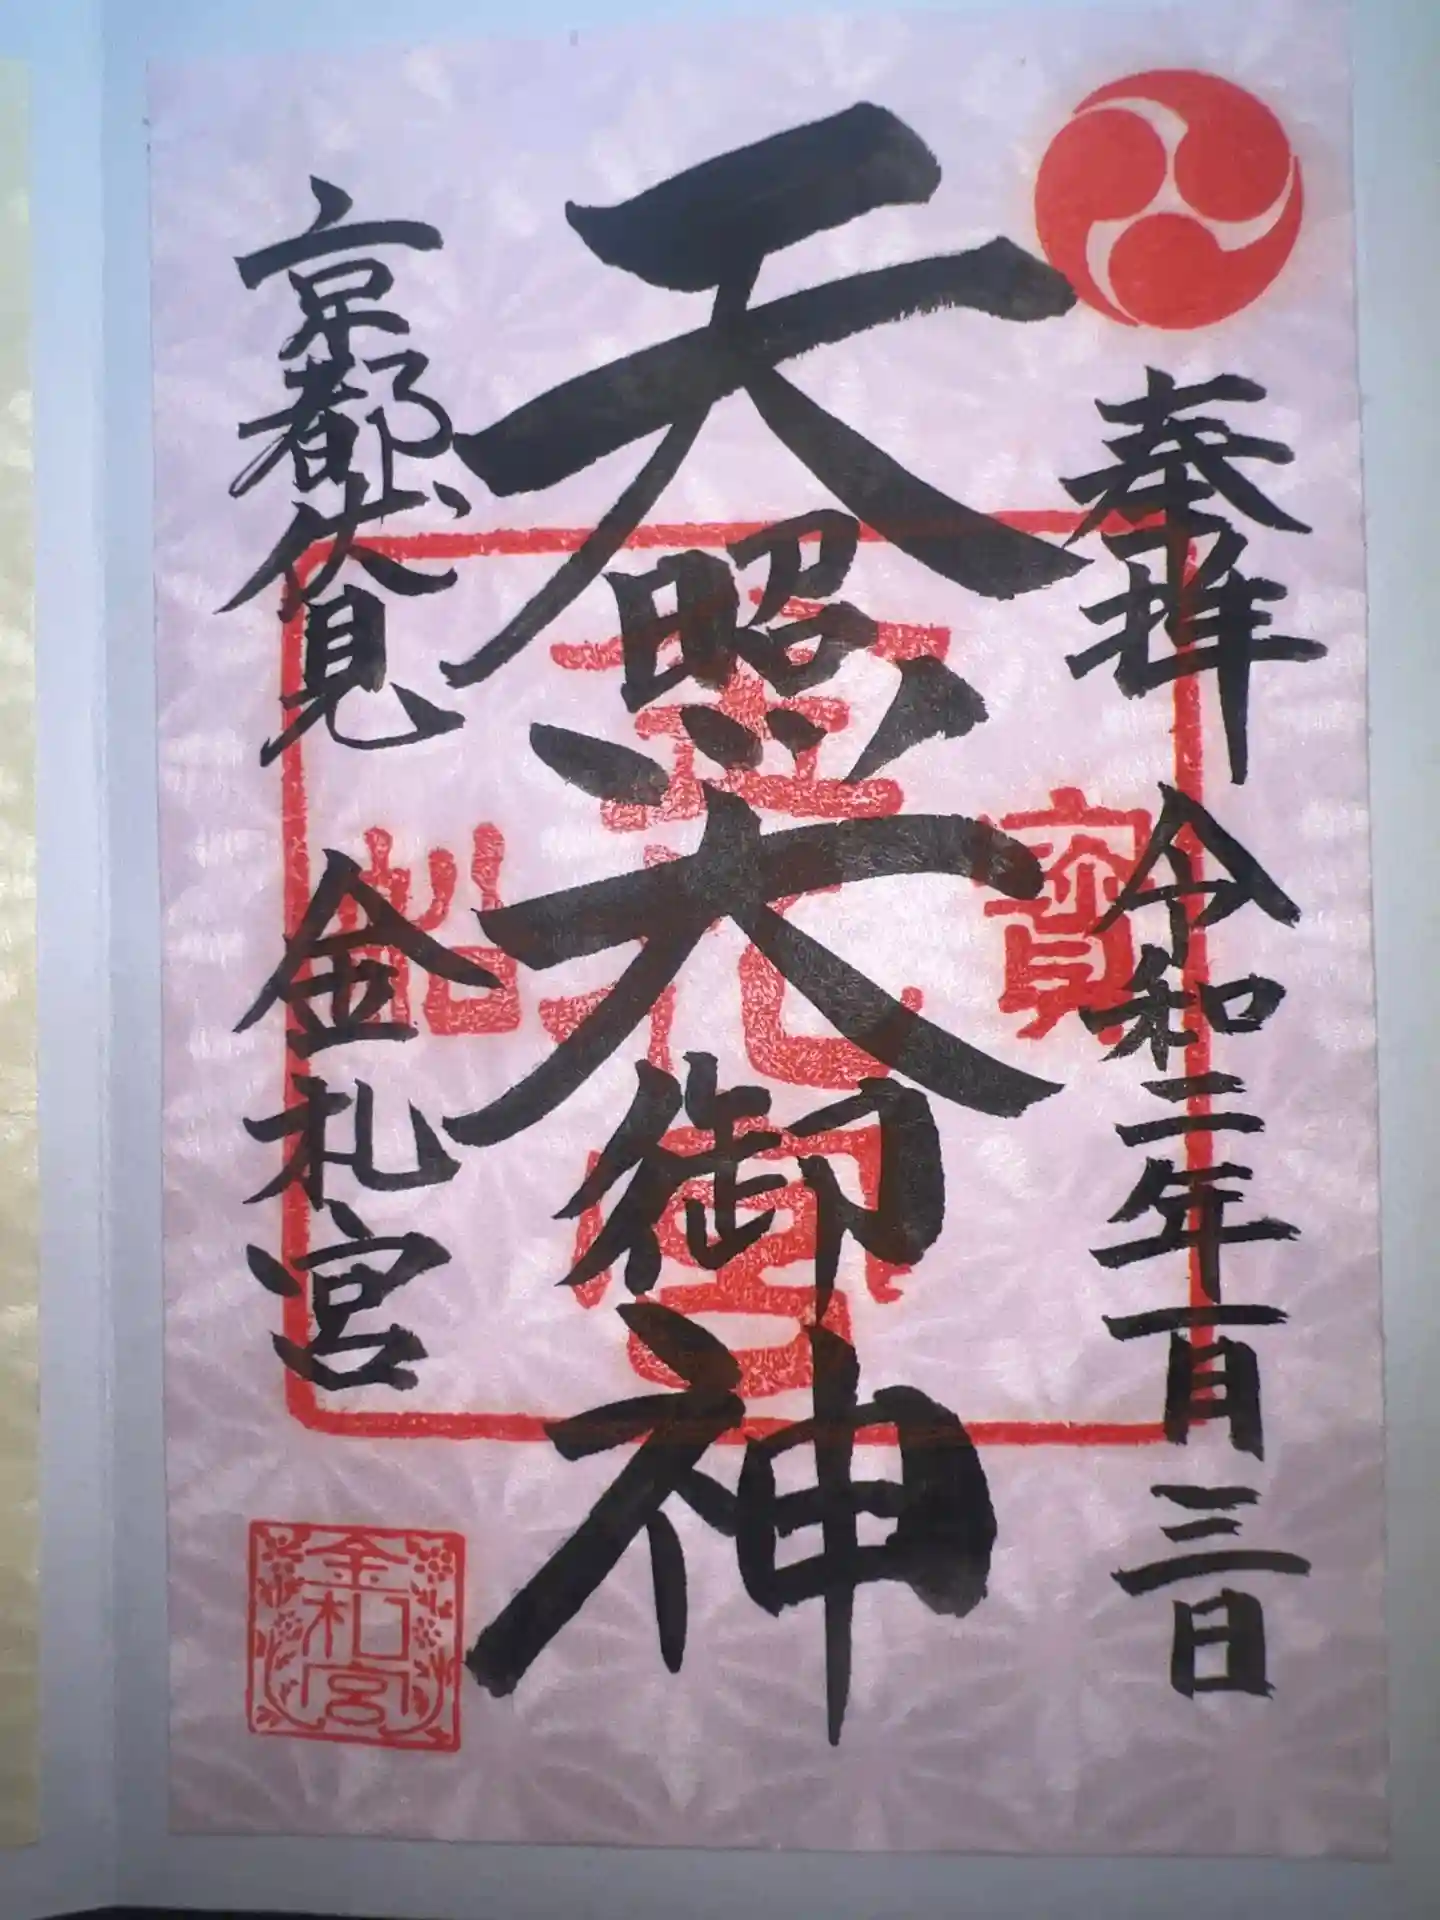 奉拝 令和二年一月三日
天照大御神
京都伏見 金札宮
寳
金札宮
船
金札宮